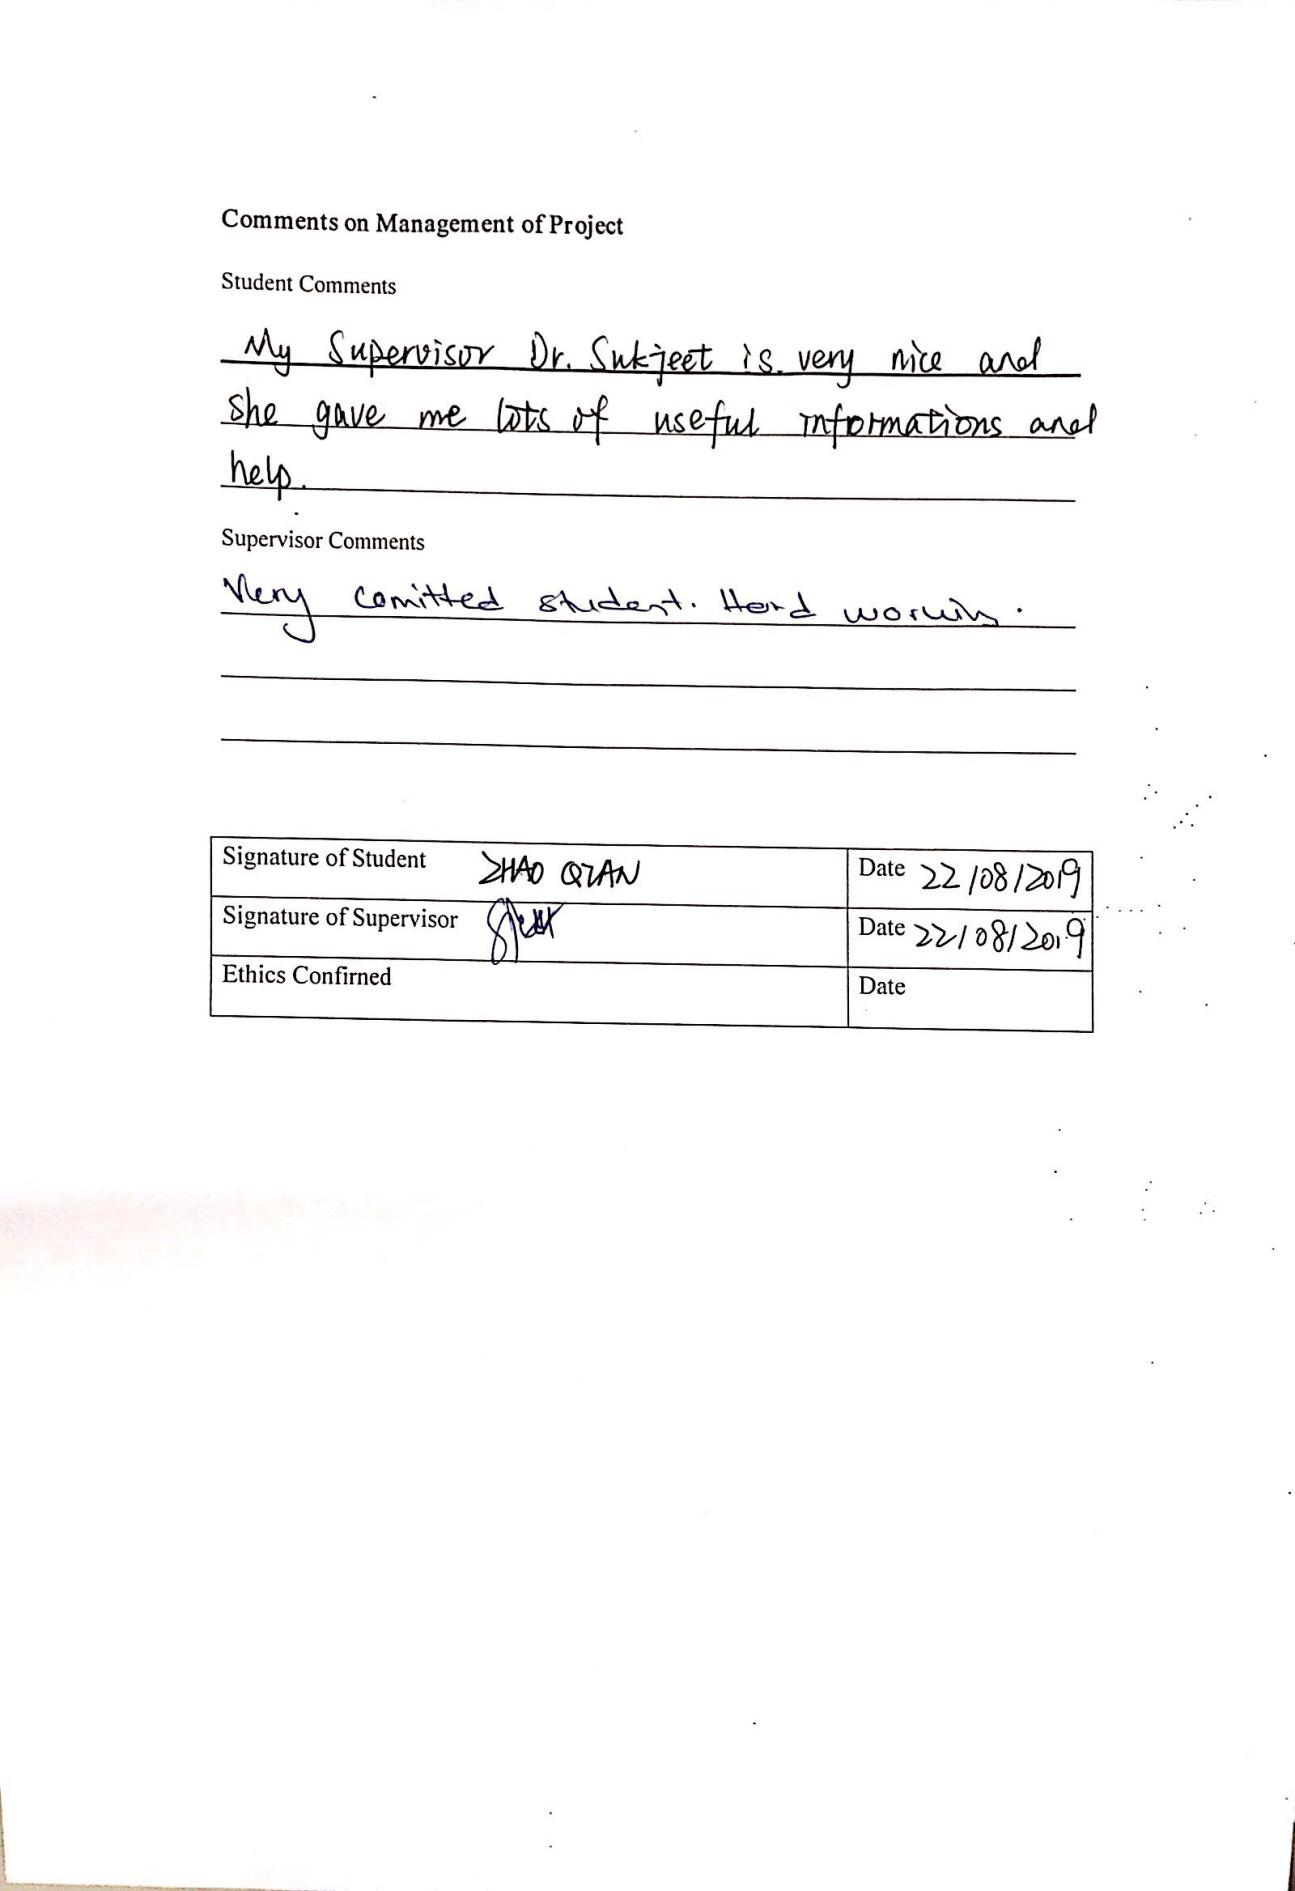 Comments on Management of Project
Student Comments
My Supervisor Dr. Sukjeet is very nice and
she gave me lots of useful informations and
help.
Supervisor Comments
Very comitted student. Hard
Signature of Student ZHAO QIAN Date 22/08/2019
Signature of Supervisor Date 22/08/2019
Ethics Confirned Date